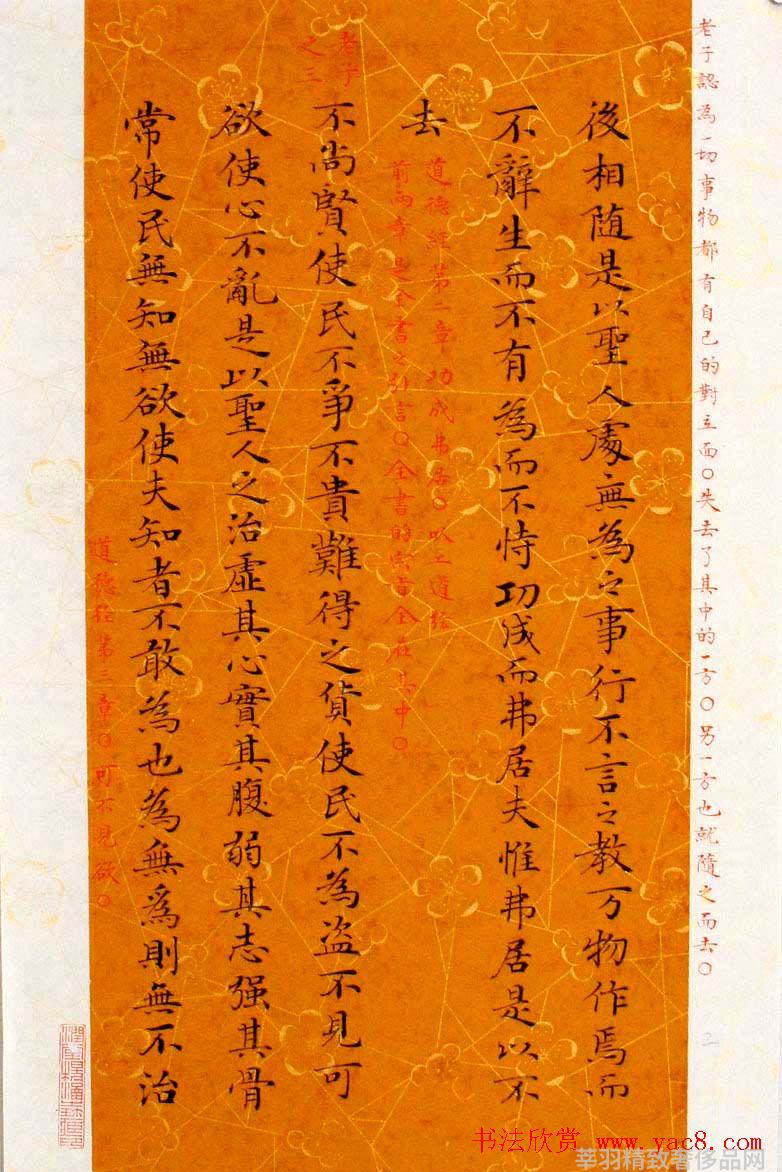 老子認為一切事物都有自己的對立面〇失去了其中的一方〇另一方也就隨之而去〇
後相随是以聖人處無為之事行不言之教万物作焉而
不辭生而不有為而不恃功成而弗居夫惟弗居是以不
去
道德經第二章功成弗居〇以上道經
前兩章是全書之引言〇全書的宗旨全在其中〇
老子
之三
不尚賢使民不爭不貴難得之貨使民不為盜不見可
欲使心不亂是以聖人之治虛其心實其腹弱其志强其骨
常使民無知無欲使夫知者不敢為也為無為則無不治
道德經第三章〇可不見欲〇
2
书法欣赏 www.yac8.com
莘羽精致奢侈品网